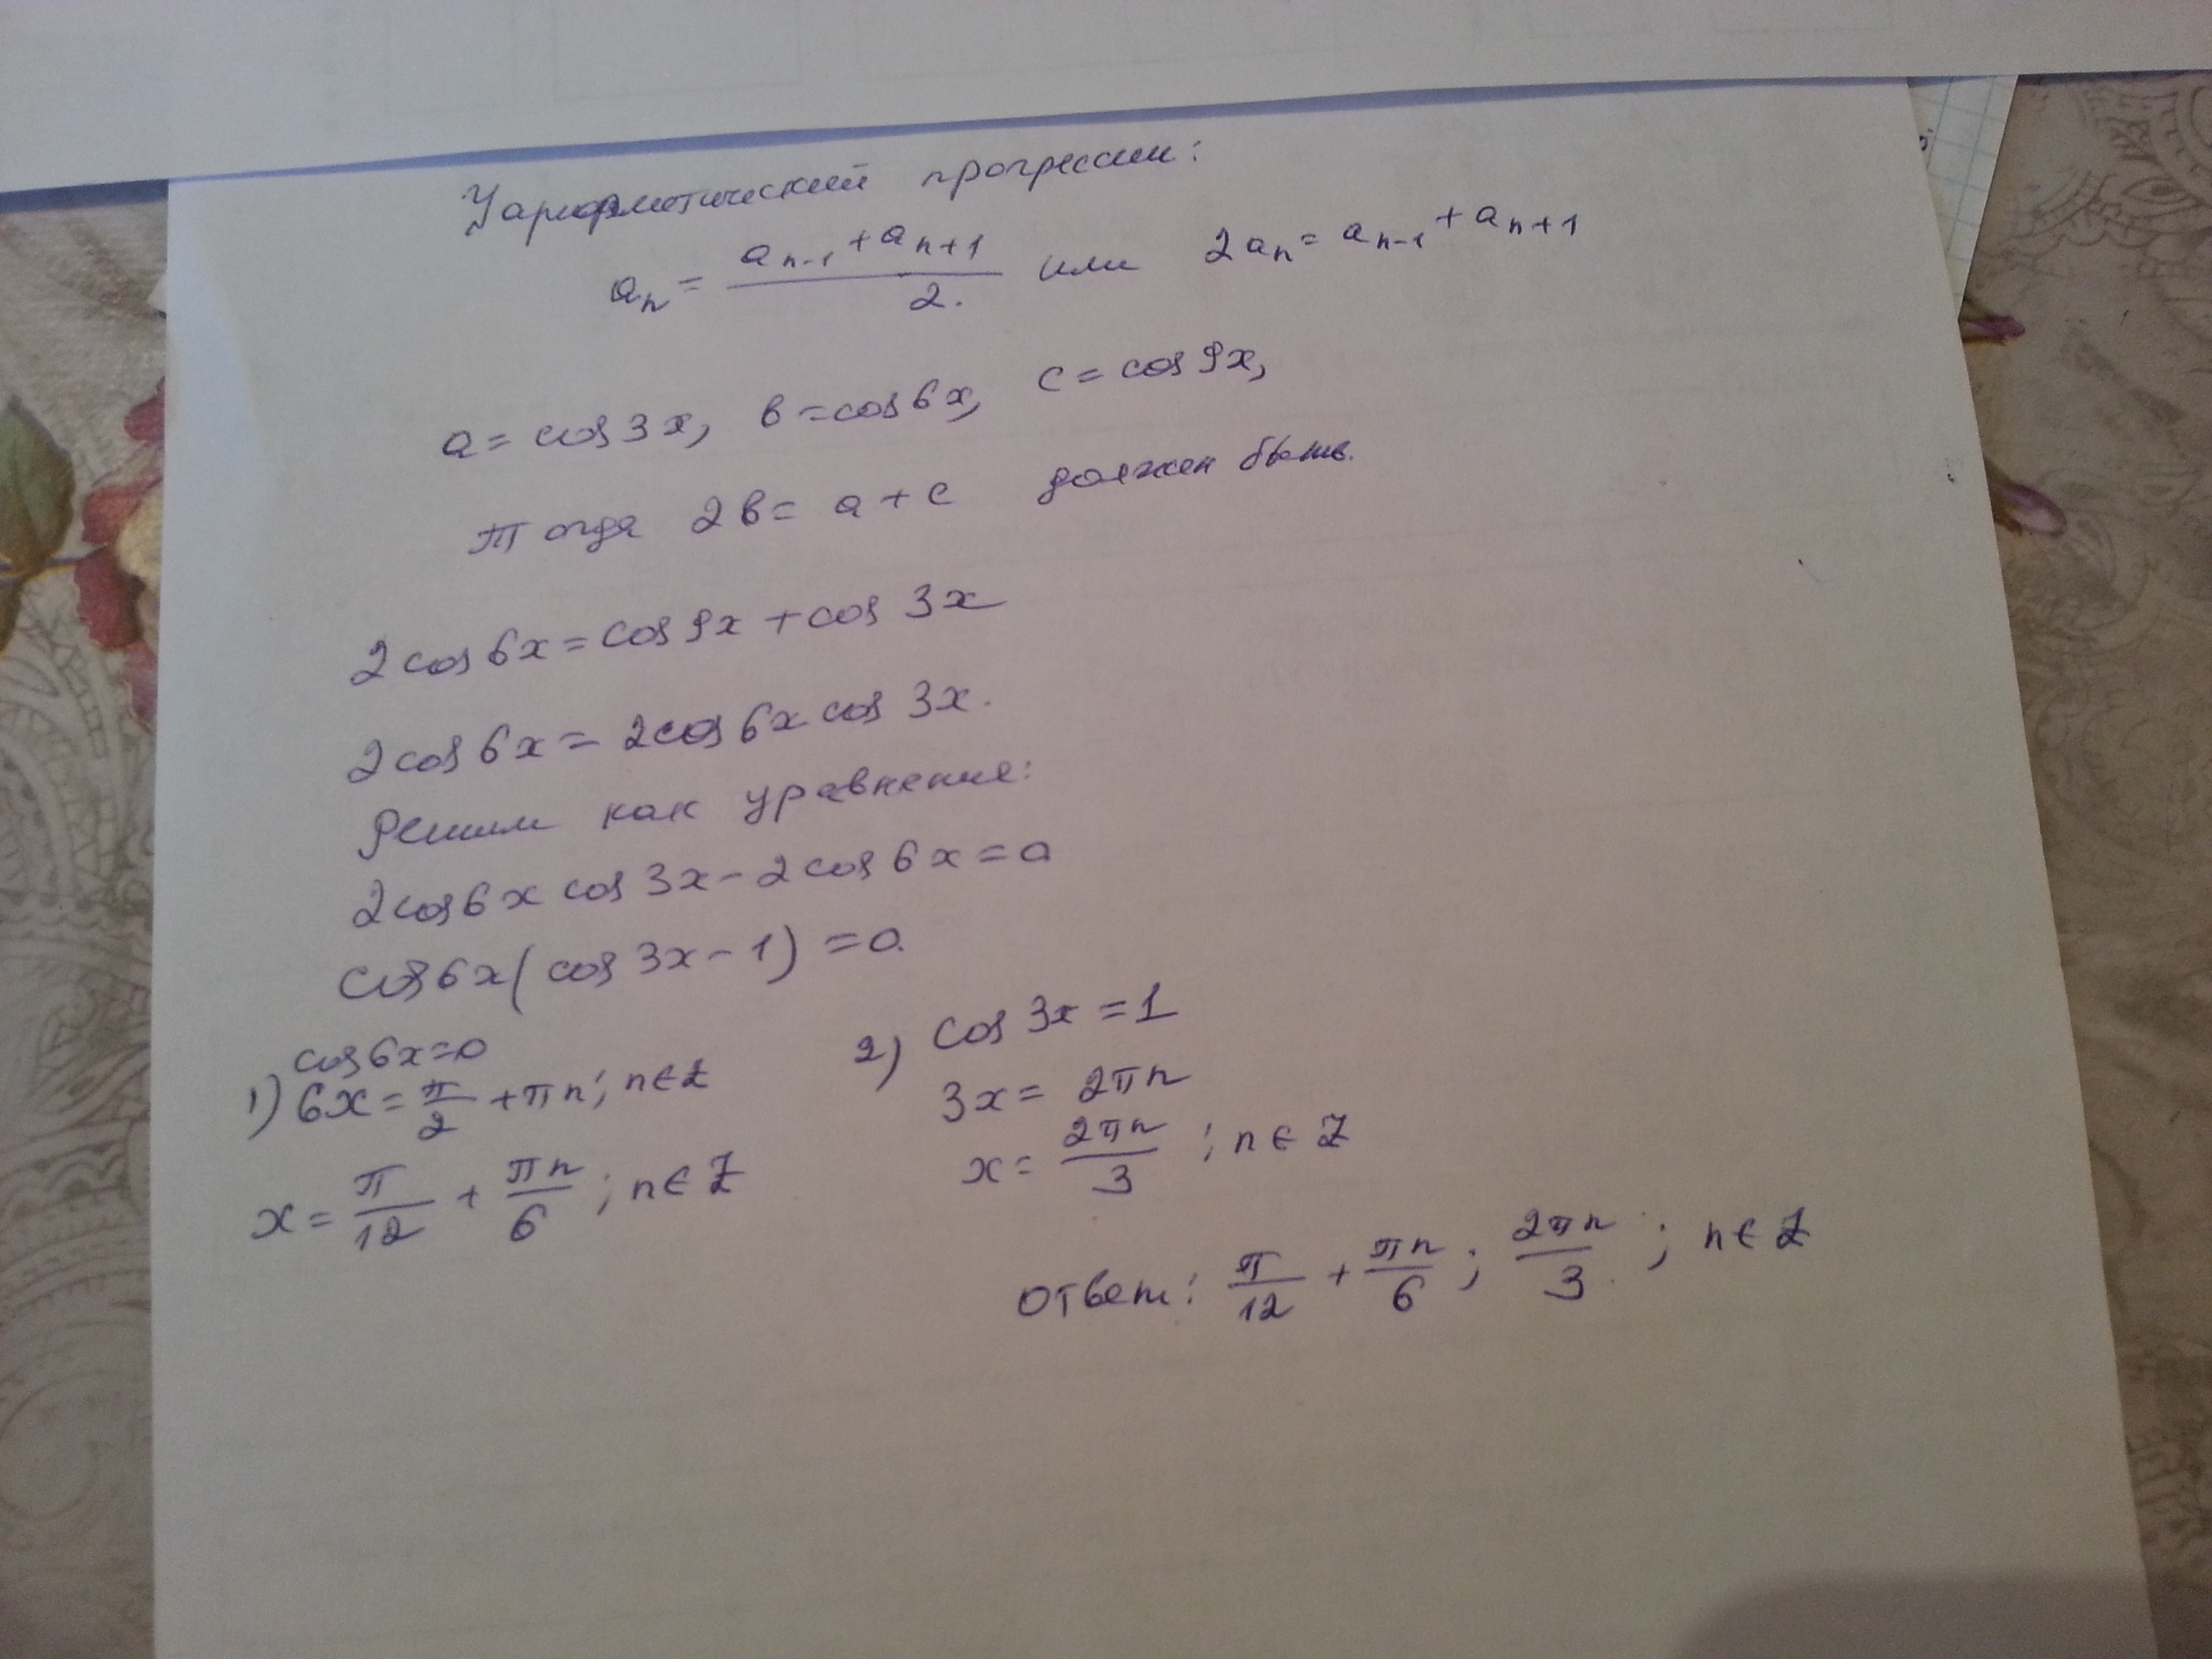 У арифметический прогрессии:
aₙ = (aₙ₋₁ + aₙ₊₁)/2. или 2aₙ = aₙ₋₁ + aₙ₊₁
a = cos 3x, в = cos 6x, c = cos 9x,
Тогда 2в = a + c должен быть.
2 cos 6x = cos 9x + cos 3x
2 cos 6x = 2 cos 6x cos 3x.
Решим как уравнение:
2 cos 6x cos 3x - 2 cos 6x = 0
cos 6x (cos 3x - 1) = 0.
cos 6x = 0
1) 6x = π/2 + πn; n ∈ Z
x = π/12 + πn/6; n ∈ Z
2) cos 3x = 1
3x = 2πn
x = 2πn/3; n ∈ Z
Ответ: π/12 + πn/6; 2πn/3; n ∈ Z